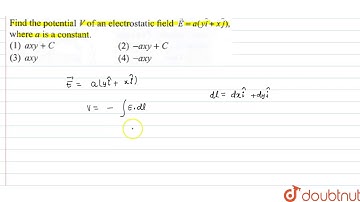 Find the potential V of an electrostatic field E⃗ = a(yî + xĵ),
where a is a constant.
(1) axy + C (2) −axy + C
(3) axy (4) −axy
E⃗ = a(yî + xĵ)
dl = dxî + dyĵ
V = − ∫ E.dl
doubtnut